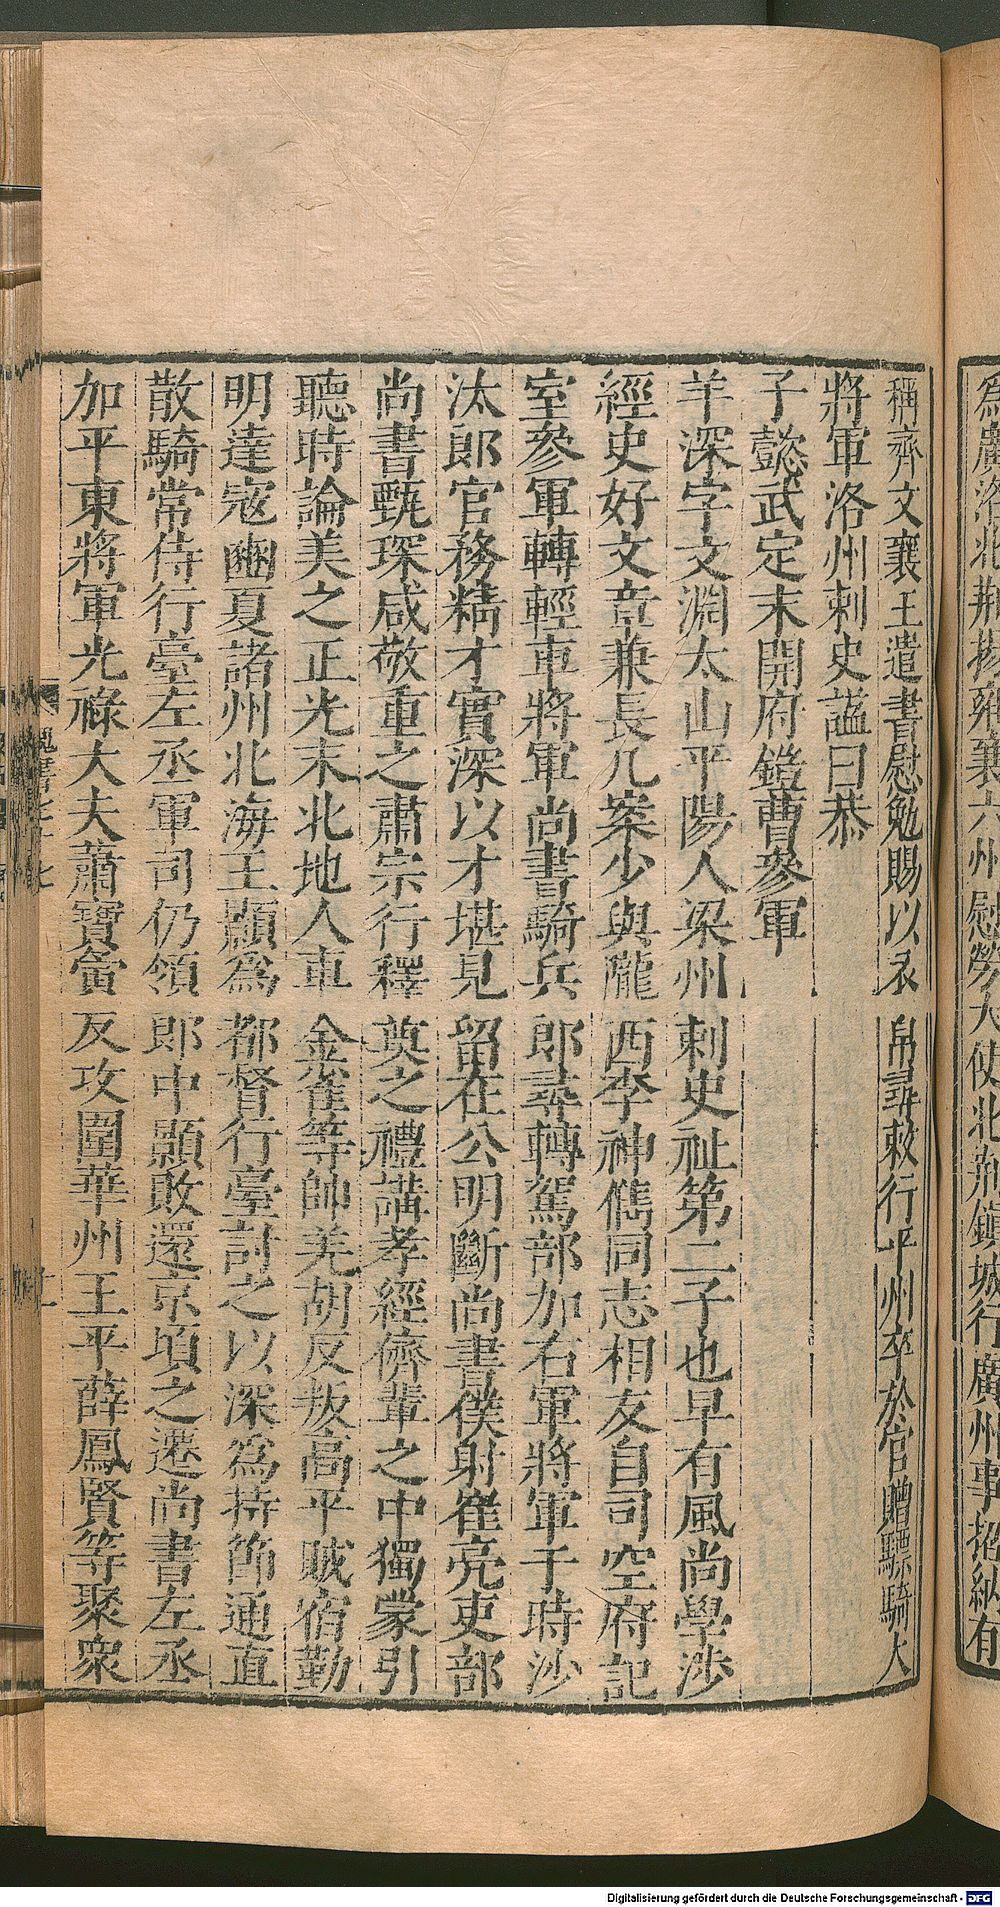 爲嚴洛北荆揚雍襄六州慰勞大使北荆鎮城行廣州事招納有
稱齊文襄王遣書慰勉賜以衣帛尋敕行平州卒於官贈驃騎大
將軍洛州刺史諡曰恭
子懿武定末開府鎧曹參軍
羊深字文淵太山平陽人梁州刺史祉第二子也早有風尚學涉
經史好文章兼長几案少與隴西李神儁同志相友自司空府記
室參軍轉輕車將軍尚書騎兵郎尋轉駕部加右軍將軍于時沙
汰郎官務精才實深以才堪見留在公明斷尚書僕射崔亮吏部
尚書甄琛咸敬重之肅宗行釋奠之禮講孝經儕輩之中獨蒙引
聽時論美之正光末北地人車金雀等帥羌胡反叛高平賊宿勤
明達寇豳夏諸州北海王顥爲都督行臺討之以深爲持節通直
散騎常侍行臺左丞軍司仍領郎中顥敗還京頃之遷尚書左丞
加平東將軍光祿大夫蕭寶夤反攻圍華州王平薛鳳賢等聚衆
魏書七十七
Digitalisierung gefördert durch die Deutsche Forschungsgemeinschaft - DFG